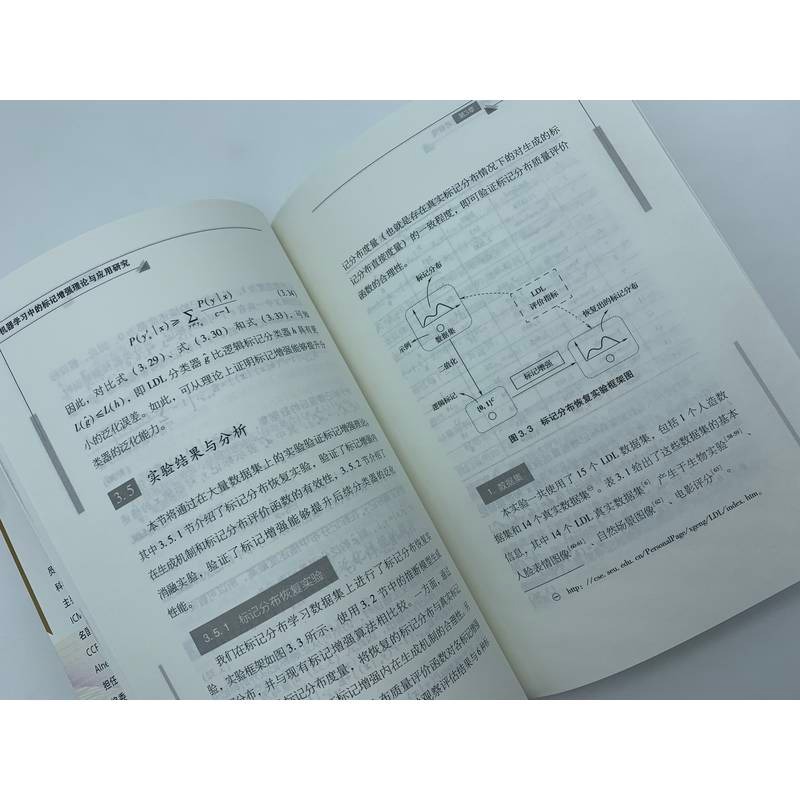 机器学习中的标记增强理论与应用研究
P(y'ₓ|x) ⩾ Σ P(y|x)/(c−1) (3.34)
因此，对比式（3.29）、式（3.30）和式（3.33），可知
L(ĝ)⩽L(h)，即 LDL 分类器 ĝ 比逻辑标记分类器 h 具有更
小的泛化误差。如此，可从理论上证明标记增强能够提升分
类器的泛化能力。
3.5 实验结果与分析
本节将通过在大量数据集上的实验验证标记增强理论。
其中 3.5.1 节介绍了标记分布恢复实验，验证了标记增强的
在生成机制和标记分布评价函数的有效性，3.5.2 节介绍了
消融实验，验证了标记增强能够提升后续分类器的泛化
性能。
3.5.1 标记分布恢复实验
我们在标记分布学习数据集上进行了标记分布恢复实
验，实验框架如图 3.3 所示，使用 3.2 节中的推断模型生成
分布，并与现有标记增强算法相比较。一方面，通过
标记分布度量，将恢复的标记分布与真实标记
标记增强内在生成机制的合理性。另
分布质量评价函数对各标记增强
观察评估结果与
第3章
记分布度量（也就是存在真实标记分布情况下的对生成的标
记分布直接度量）的一致程度，即可验证标记分布质量评价
函数的合理性。
标记分布
LDL
评价指标
恢复出的标记分布
示例
数据集
二值化
逻辑标记
{0, 1}ᶜ
标记增强
图 3.3 标记分布恢复实验框架图
1. 数据集
本实验一共使用了 15 个 LDL 数据集，包括 1 个人造数
据集和 14 个真实数据集㊀。表 3.1 给出了这些数据集的基本
信息，其中 14 个 LDL 真实数据集产生于生物实验、
人脸表情图像、自然场景图像、电影评分、
㊀ http: //cse. seu. edu. cn/PersonalPage/xgeng/LDL/index. htm。
科
主
ICM
名
CCF
担任